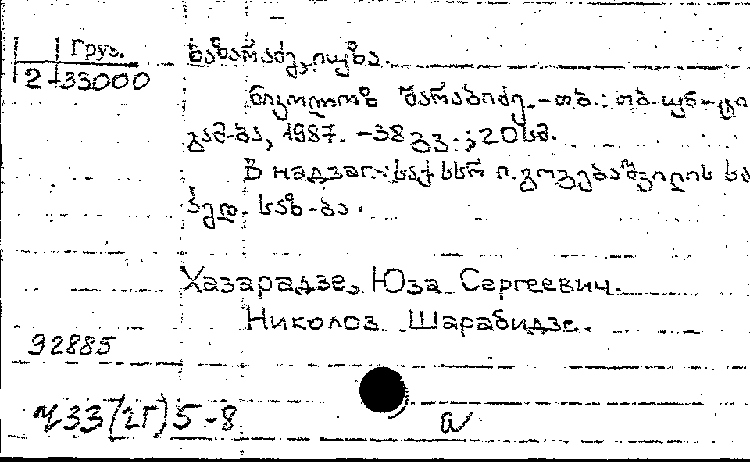 Груз.
2-33000
ხაზარაძე, იუზა.
ნიკოლოზ შარაბიძე. - თბ.: თბ. უნ-ტი
გამ-ბა, 1987. - 38 გვ.; 20 სმ.
В надзаг.: საქ სსრ ი. გოგებაშვილის სა
პედ. საზ-ბა.
Хазарадзе, Юза Сергеевич.
Николоз Шарабидзе.
92885
Ч33(2Г)5-8
а